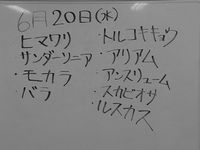 6月20日(水)
ヒマワリ
サンダーソニア
・モカラ
・バラ
・トルコキキョウ
・アリアム
・アンスリューム
・スカビオサ
・ルスカス